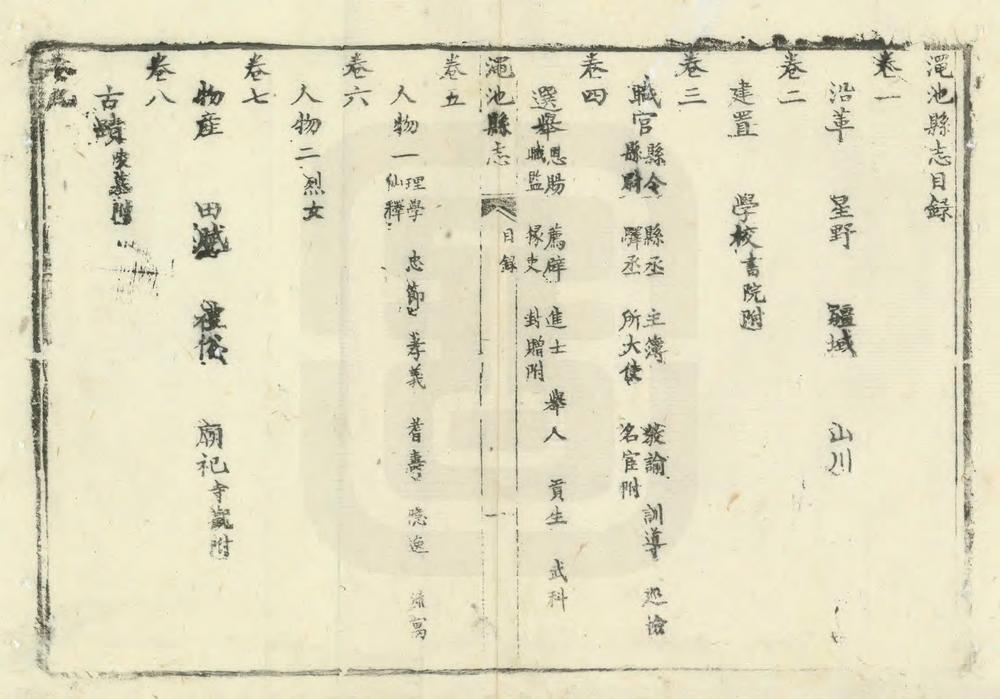 澠池縣志目録
卷一
沿革 星野 疆域 山川
卷二
建置 學校書院附
卷三
職官縣令 縣丞 主簿 教諭 訓導 巡檢
縣尉 驛丞 所大使 名宦附
卷四
選舉恩賜 薦辟 進士 舉人 貢生 武科
職監 掾史 封贈附
澠池縣志 目録 一
卷五
人物一理學 忠節 孝義 耆壽 隱逸 流寓
仙釋
卷六
人物二烈女
卷七
物産 田賦 禮俗 廟祀寺觀附
卷八
古蹟陵墓附
卷九